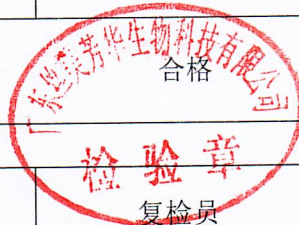 广东丝芙华生物科技有限公司
合格
检验章
复检员